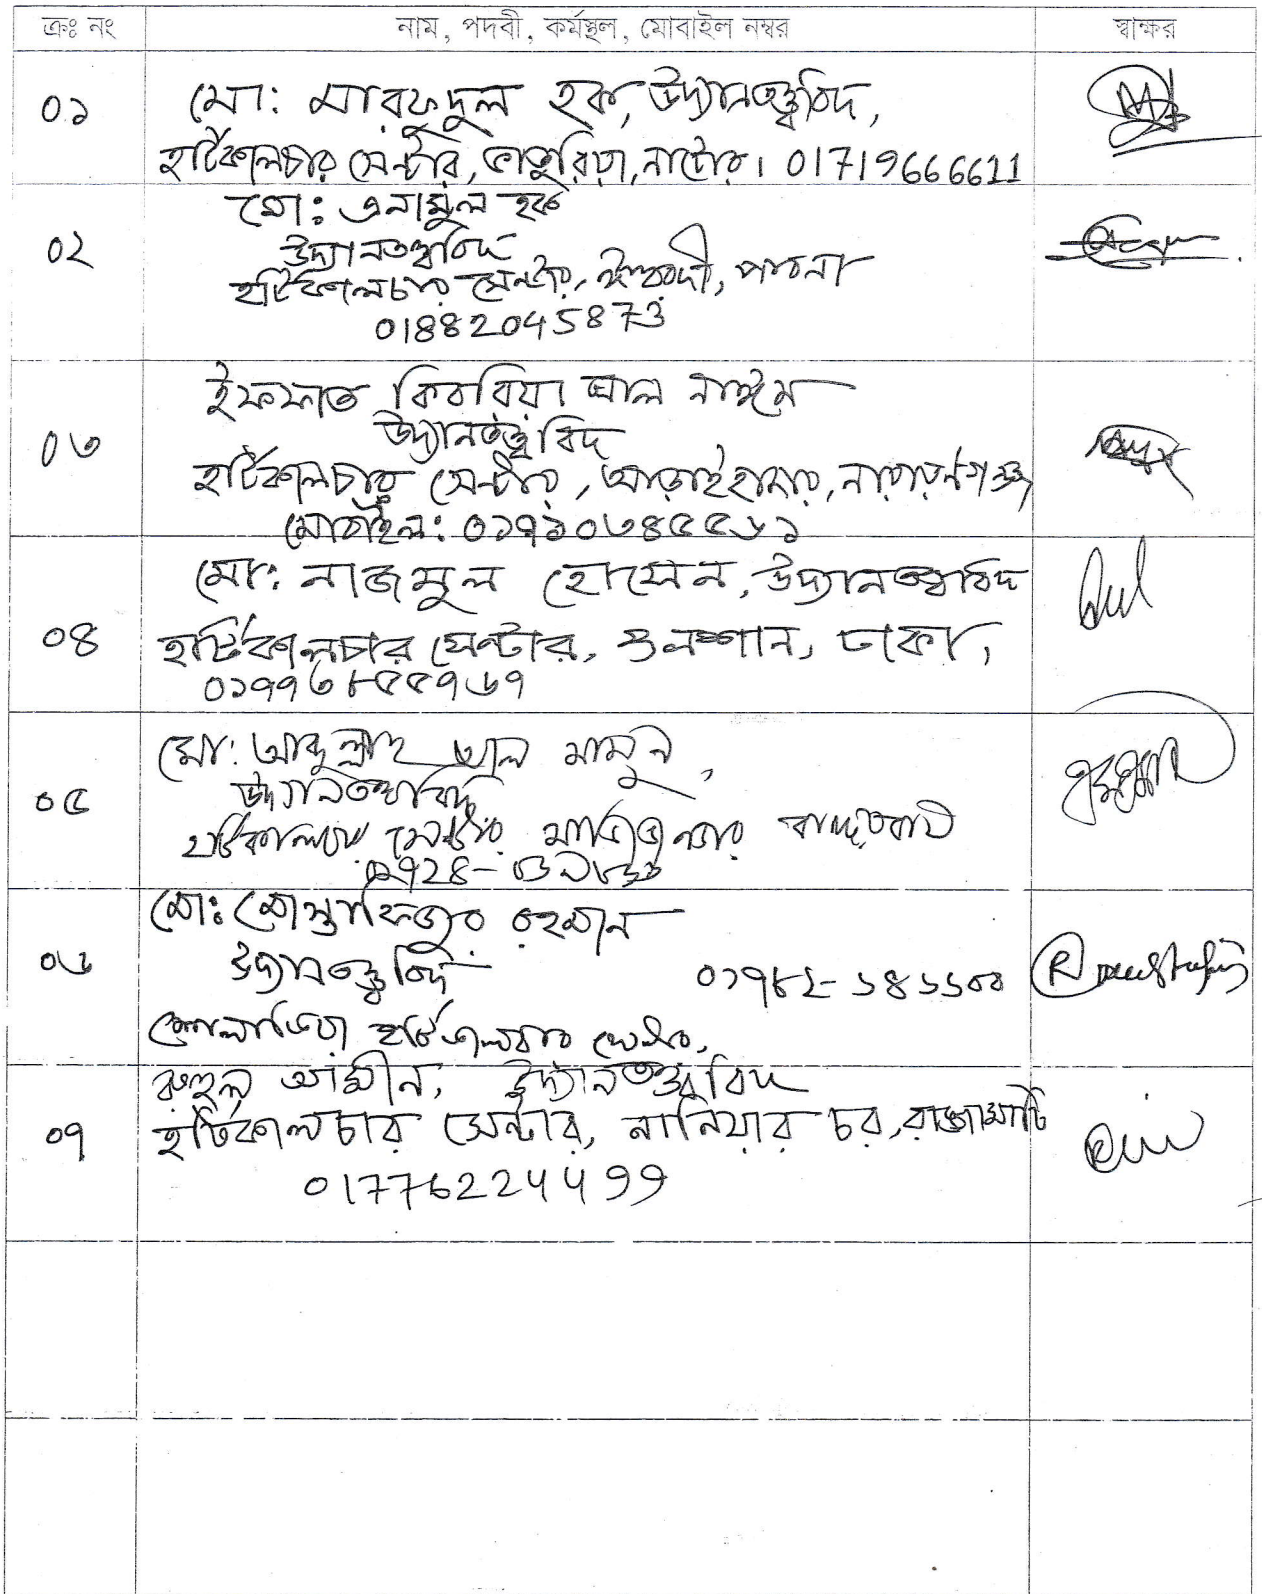 ক্রঃ নং নাম, পদবী, কর্মস্থল, মোবাইল নম্বর স্বাক্ষর
০১ মো: মারফুদুল হক, উদ্যানতত্ত্ববিদ,
হর্টিকালচার সেন্টার, নাটোর। 01719666611
মো: এনামুল হক
০২ উদ্যানতত্ত্ববিদ
হর্টিকালচার সেন্টার, ঈশ্বরদী, পাবনা
01882045873
ইফফাত কিবরিয়া আল নাঈম
০৩ উদ্যানতত্ত্ববিদ
হর্টিকালচার সেন্টার, আড়াইহাজার, নারায়ণগঞ্জ
মোবাইল: ০১৭১০৩৪৫৫৬১
মো: নাজমুল হোসেন, উদ্যানতত্ত্ববিদ
০৪ হর্টিকালচার সেন্টার, গুলশান, ঢাকা,
০১৭৭৩৮৫৫৭৬৭
মো: আব্দুল্লাহ আল মামুন,
০৫ উদ্যানতত্ত্ববিদ
হর্টিকালচার সেন্টার
মো: মোস্তাফিজুর রহমান
০৬ উদ্যানতত্ত্ববিদ ০১৭৮২-১৪১১০০
হর্টিকালচার সেন্টার,
রুহুল আমীন, উদ্যানতত্ত্ববিদ
০৭ হর্টিকালচার সেন্টার, নানিয়ার চর, রাঙ্গামাটি
01776224499